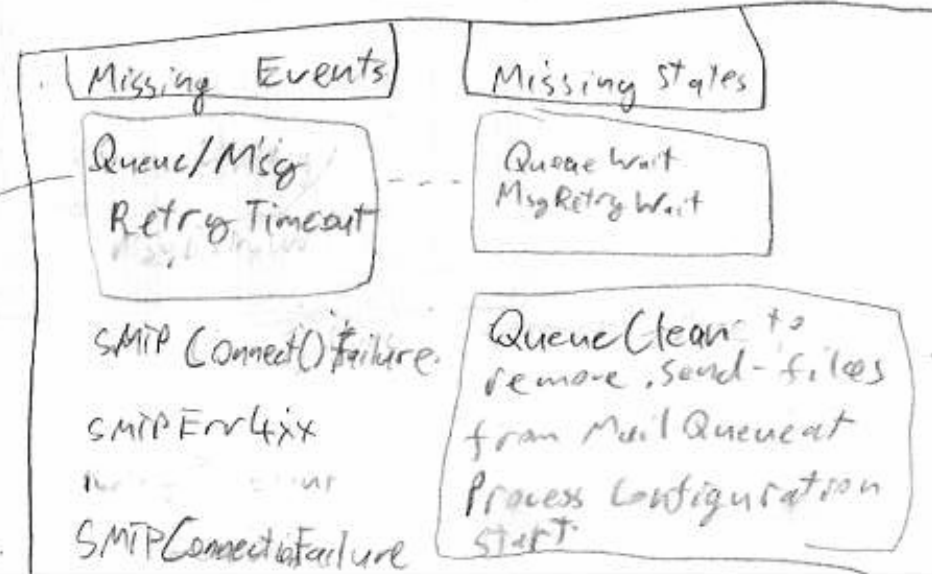 Missing Events
Queue/Msg
Retry Timeout
SMTP Connect() failure
SMTP Err4xx
SMTP Connection Failure
Missing States
Queue Wait
MsgRetry Wait
QueueClean to
remove .send-files
from Mail Queue at
Process Configuration
start